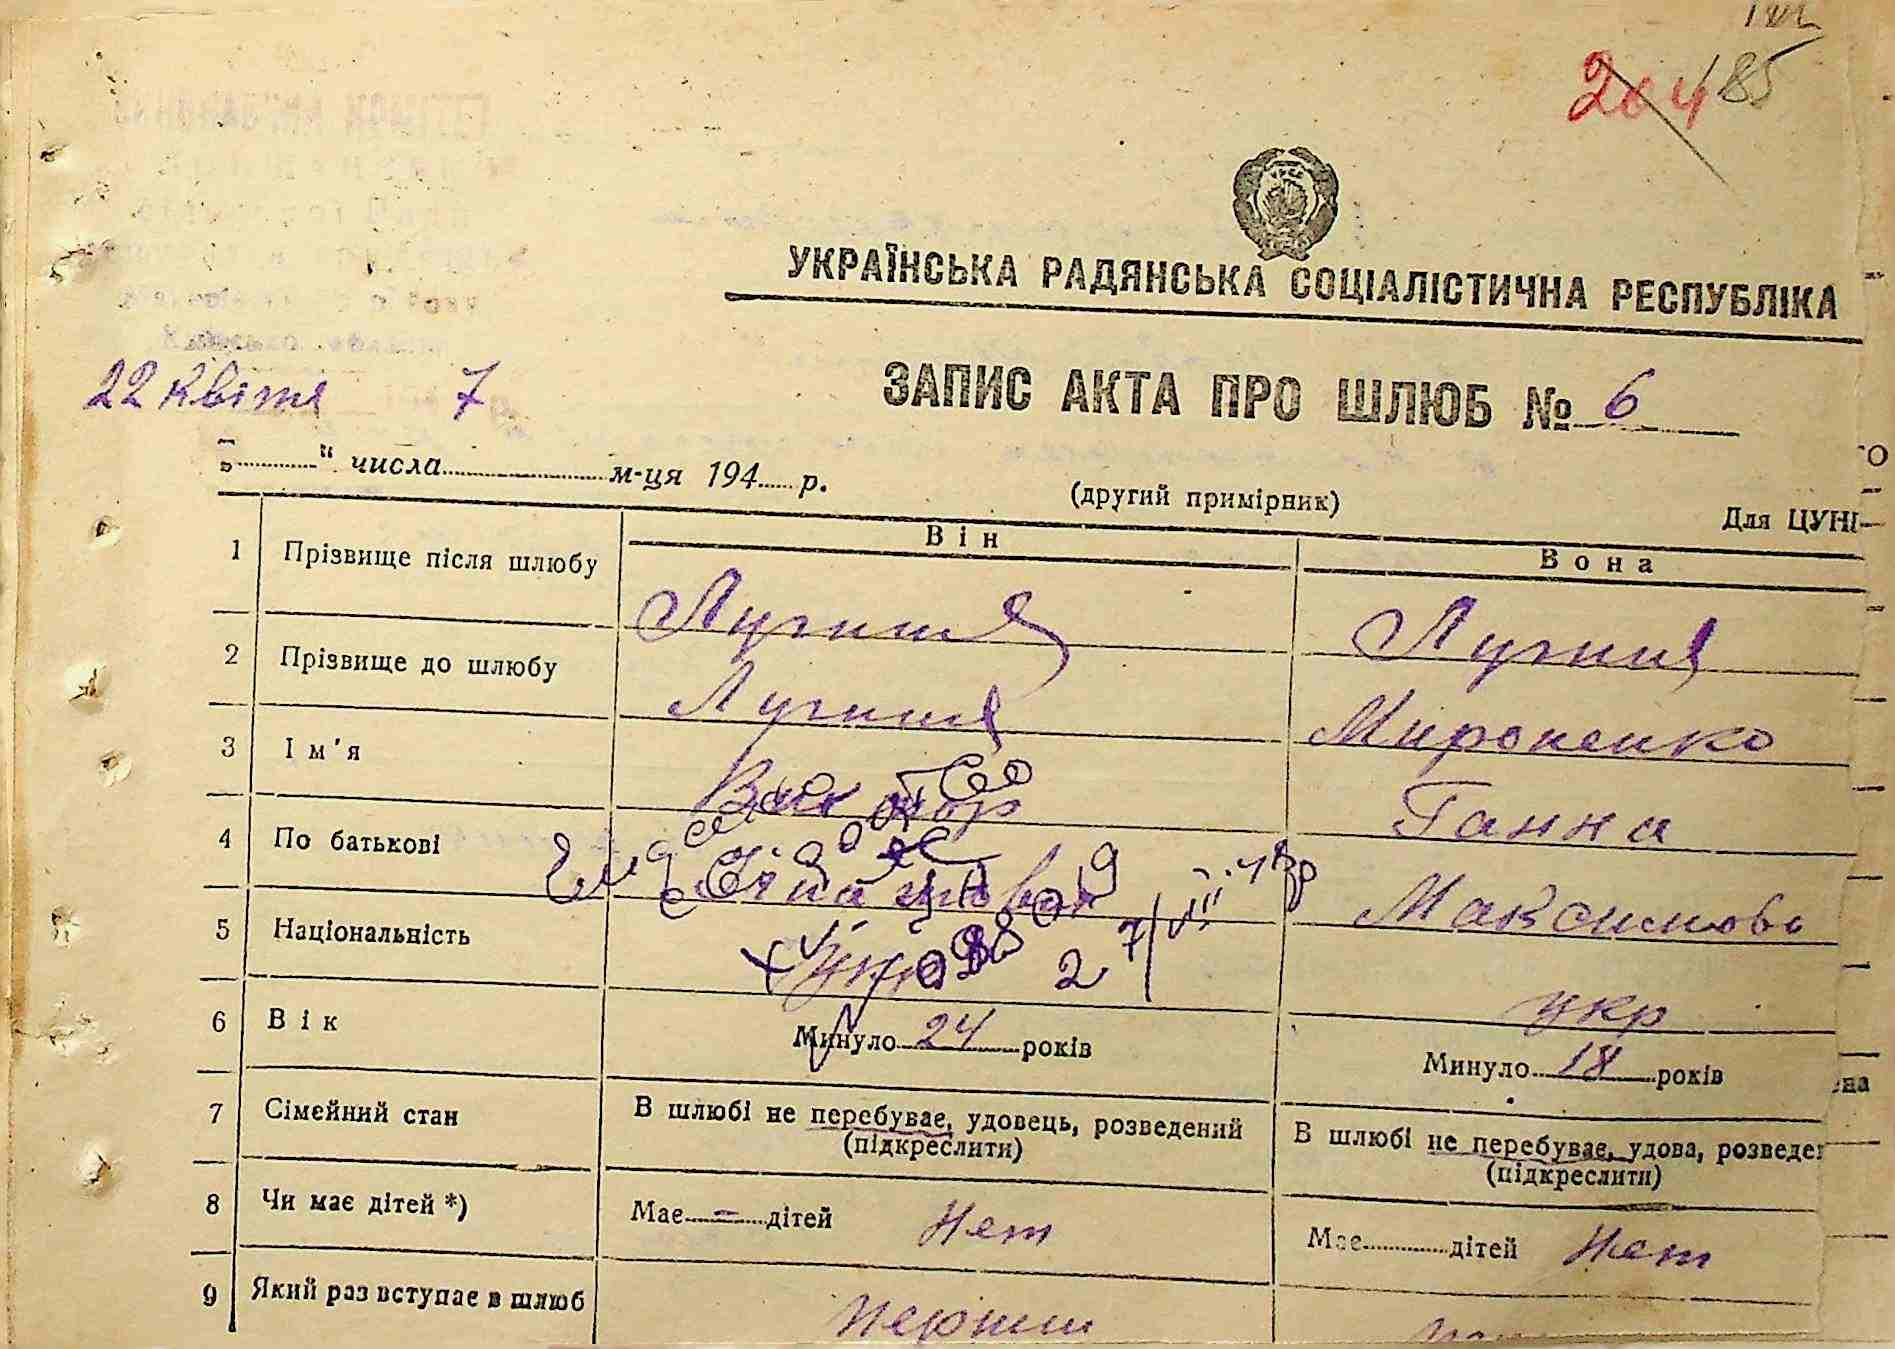 185
204
УКРАЇНСЬКА РАДЯНСЬКА СОЦІАЛІСТИЧНА РЕСПУБЛІКА
ЗАПИС АКТА ПРО ШЛЮБ № 6
22 квітня 7
„ “ числа м-ця 194 р.
(другий примірник)
Для ЦУНГ
Він Вона
1 Прізвище після шлюбу
2 Прізвище до шлюбу Мироненко
3 Ім'я Виктор Ганна
4 По батькові Максимовн
5 Національність укр
6 Вік Минуло 24 років Минуло 18 років
7 Сімейний стан В шлюбі не перебуває, удовець, розведений (підкреслити) В шлюбі не перебуває, удова, розведен (підкреслити)
8 Чи має дітей *) Має – дітей Нет Має дітей Нет
9 Який раз вступає в шлюб перший